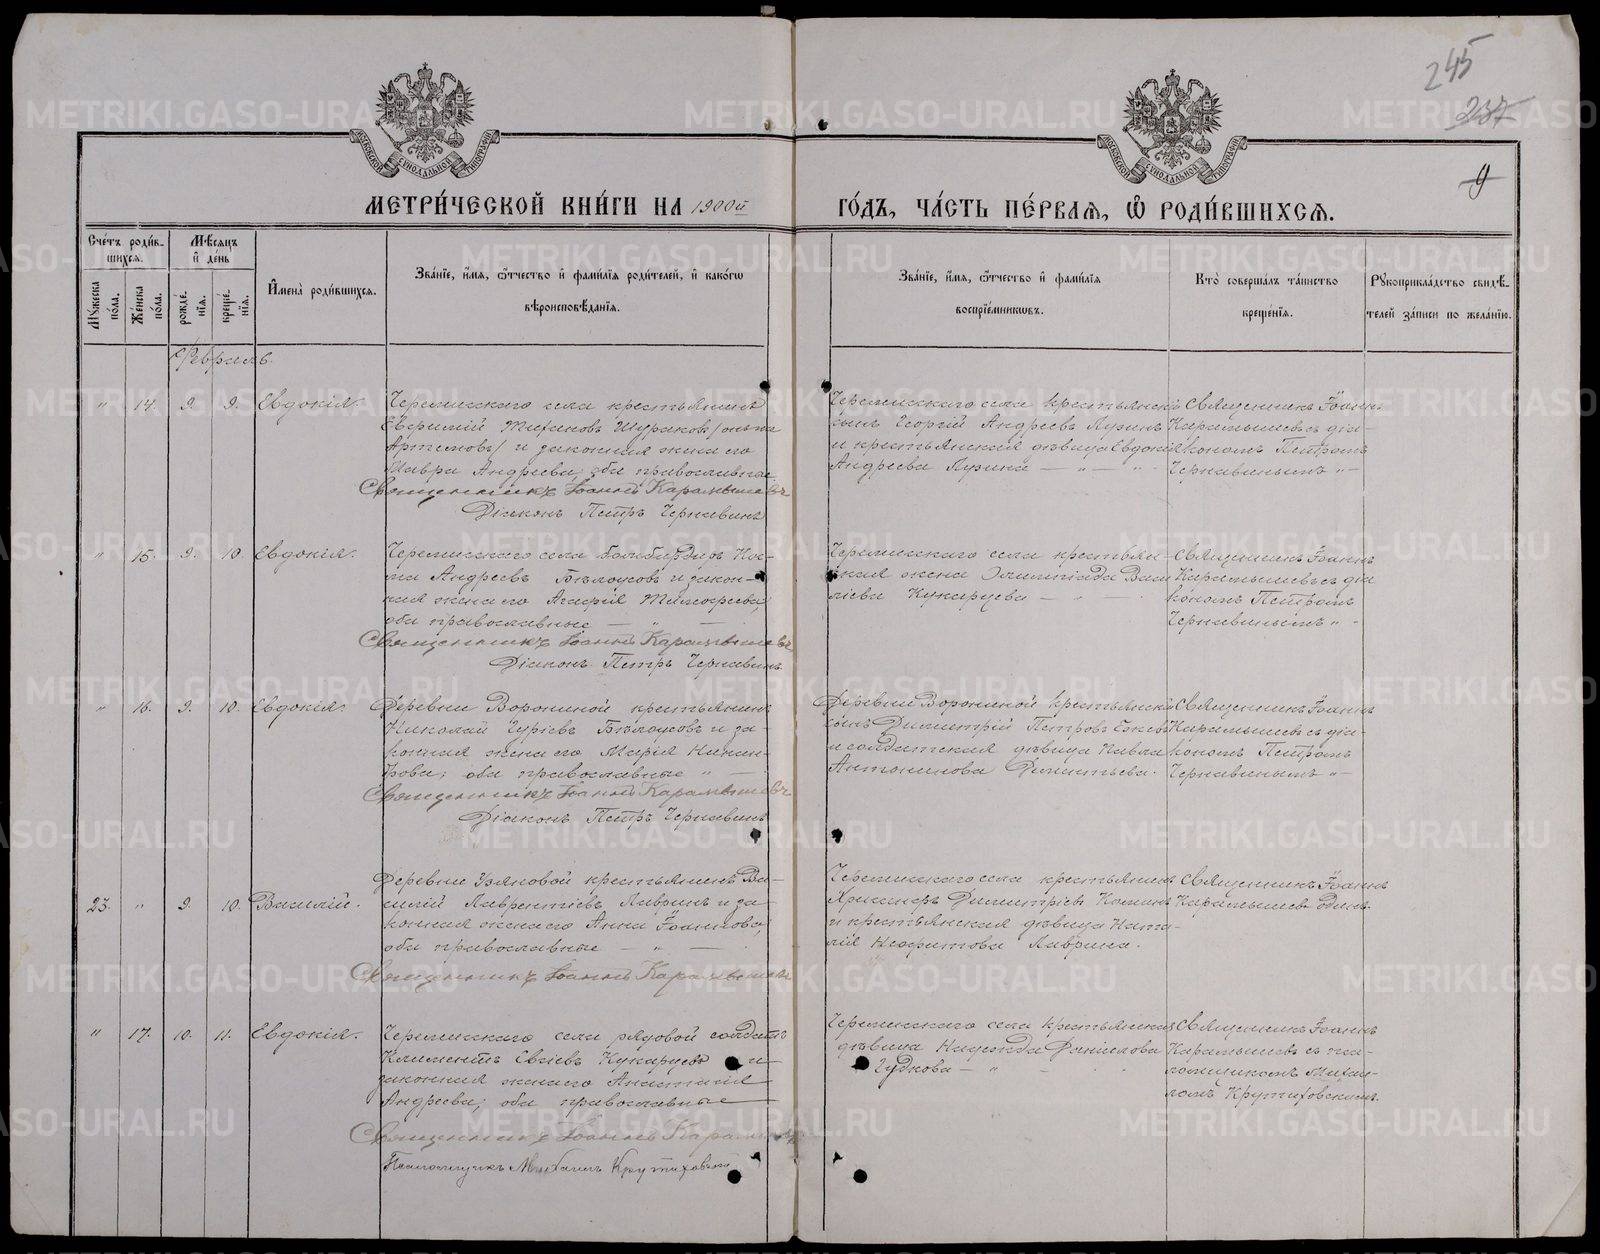 245
237
9
МЕТРИ́ЧЕСКОЙ КНИ́ГИ НА 1900й ГО́ДЪ, ЧА́СТЬ ПЕ́РВАѦ, Ѽ РОДИ́ВШИХСѦ.
Сче́тъ роди́в-
шихсѧ.
Мѣ́сѧцъ
и҆ де́нь
Мꙋ́жеска по́ла.
Же́нска по́ла.
рожде́-
нїѧ.
креще́-
нїѧ.
И҆мена̀ роди́вшихсѧ.
Зва́нїе, и҆́мѧ, ѻ҆́тчество и҆ фами́лїѧ роди́телей, и҆ како́гѡ
вѣроисповѣ́данїѧ.
Зва́нїе, и҆́мѧ, ѻ҆́тчество и҆ фами́лїѧ
воспрїе́мникѡвъ.
Кто̀ соверша́лъ та́инство
креще́нїѧ.
Рꙋкоприкла́дство свидѣ́-
телей за́писи по жела́нїю.
Февраль.
" 14. 9. 9. Евдокія.
Черемисскаго села крестьянинъ
Евфимій Тихоновъ Шураковъ (онъ же
Артемовъ) и законная жена его
Мавра Андреева; оба православные
Священникъ Іоаннъ Карамышевъ
Діаконъ Петръ Чернавинъ
Черемисскаго села крестьянскій
сынъ Георгій Андреевъ Лузинъ
и крестьянская дѣвица Евдокія
Андреева Лузина — " — "
Священникъ Іоаннъ
Карамышевъ съ діа-
кономъ Петромъ
Чернавинымъ " —
" 15. 9. 10 Евдокія.
Черемисскаго села бомбардиръ Кос-
ма Андреевъ Бѣлоусовъ и закон-
ная жена его Агафія Тимофеева,
оба православные — " —
Священникъ Іоаннъ Карамышевъ
Діаконъ Петръ Чернавинъ
Черемисскаго села крестьян-
ская жена Олимпіада Васи
ліева Кукарцева — " —
Священникъ Іоаннъ
Карамышевъ съ діа
кономъ Петромъ
Чернавинымъ " -
" 16. 9. 10. Евдокія.
Деревни Ворониной крестьянинъ
Николай Гурьевъ Бѣлоусовъ и за-
конная жена его Марія Никан-
дрова; оба православные " —
Священникъ Іоаннъ Карамышевъ
Діаконъ Петръ Чернавинъ
Деревни Ворониной крестьянскій
сынъ Димитрій Петровъ Ежевъ
и солдатская дѣвица Павла
Антонинова Дементьева.
Священникъ Іоаннъ
Карамышевъ съ діа-
кономъ Петромъ
Чернавинымъ " —
23. " 9. 10. Василій.
Деревни Узяновой крестьянинъ Ва-
силій Лаврентіевъ Лавринъ и за-
конная жена его Анна Іоаннова,
оба православные — " —
Священникъ Іоаннъ Карамышевъ
Черемисскаго села крестьянинъ
Димитріевъ
и крестьянская дѣвица Ната-
лія Неофитова Лаврина.
Священникъ Іоаннъ
Карамышевъ одинъ.
" 17. 10. 11. Евдокія.
Черемисскаго села рядовой солдатъ
Климентъ Евсіевъ Кукарцевъ и
законная жена его Анастасія
Андреева; оба православные
Священникъ Іоаннъ Карамышевъ
Псаломщикъ Михаилъ Крутиховскій
Черемисскаго села крестьянская
дѣвица Надежда Даніилова
Гудкова — " —
Священникъ Іоаннъ
Карамышевъ съ пса-
ломщикомъ Михаи-
ломъ Крутиховскимъ.
METRIKI.GASO-URAL.RU